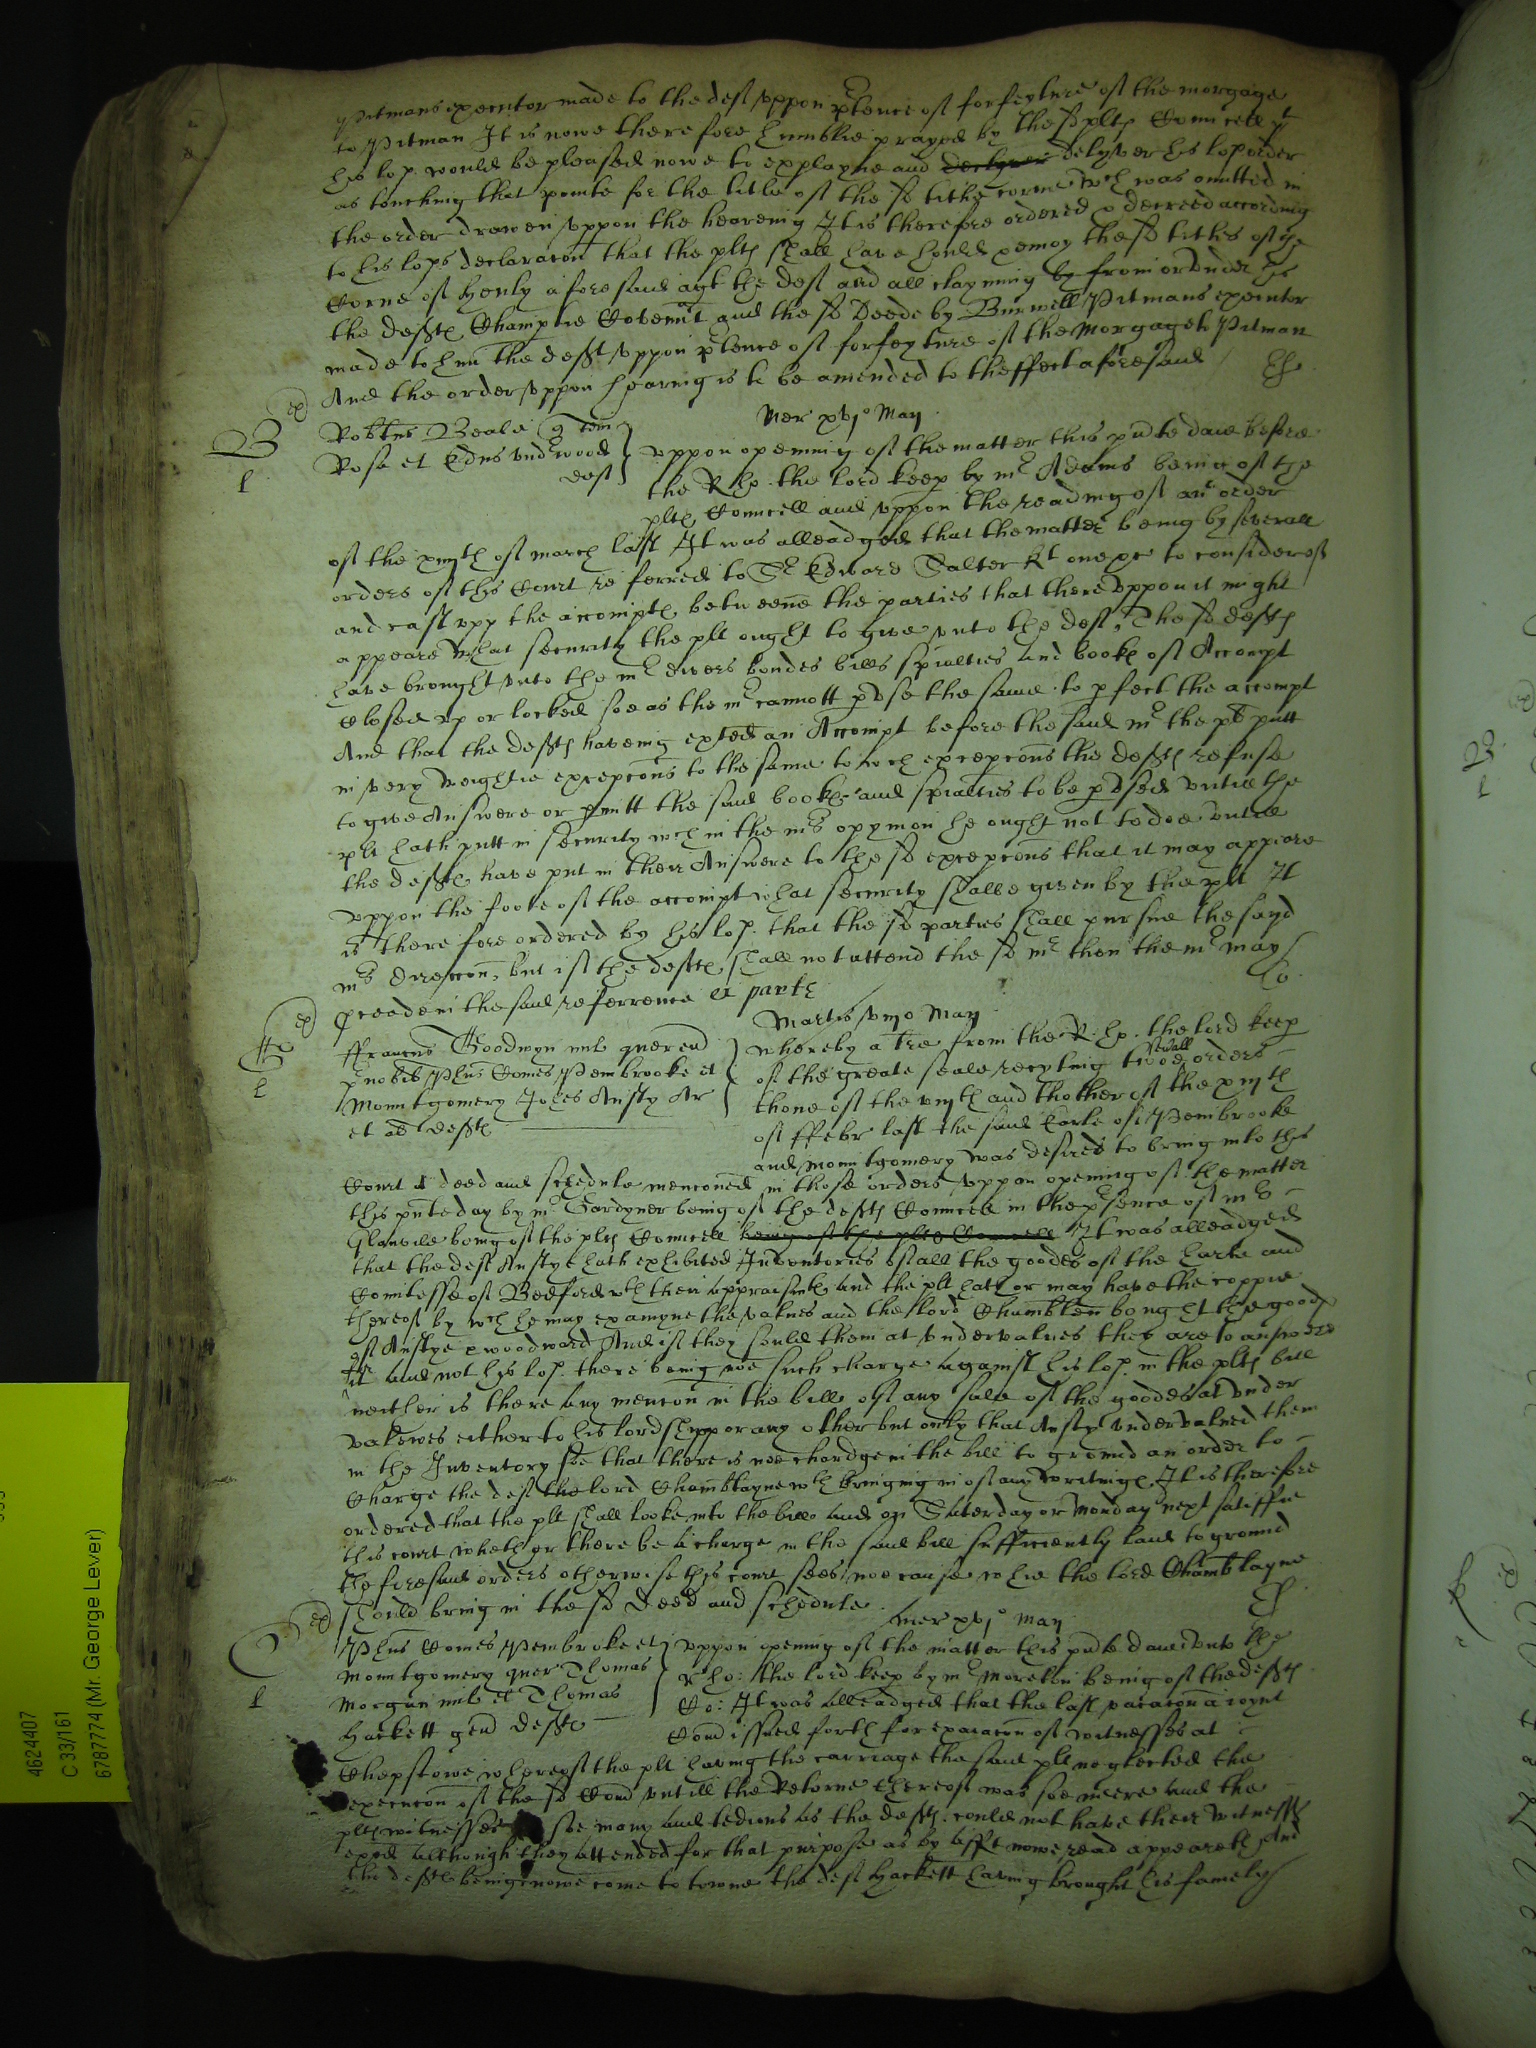 Pitmans executor made to the deft uppon ptence of forfeyture of the morgage
to Pitman It is nowe therefore humblie prayed by the sd plts Councell yt
his lop. would be pleased nowe to explayne and delyver his lops order
as touching that pointe for the title of the sd tithe corne wch was omitted in
the order drawen uppon the hearinge It is therefore ordered & decreed according
to his lops declaracon that the plts shall have hould & enioy the sd tithes of ye
Corne of Henly aforesaid agt the deft and all clayming by from or under
the defts Champtie Covennt and the sd Deede by Burwell Pitmans executor
made to him the deft uppon ptence of forfeyture of the Morgage to Pitman
And the order uppon hearing is to be amended to theffect aforesaid
Mer xvjo Maij
Robtus Beale q tem
Rosa et Edrus undrwood
deft
uppon openinge of the matter this pnte daie before
the R. ho. the lord keep by mr Adams being of the
plts Councell and uppon the reading of an order
of the xiijth of march last It was alleadged that the matter being by severall
orders of this Court referred to Sr Edward Salter kt one &c to consider of
and cast upp the accompts betweene the parties that thereuppon it might
appeare what security the plt ought to give unto the deft, The sd defts
have brought unto the mr divers bondes bills spialties and books of Accompt
closed up or locked soe as the mr cannott pvse the same to pfect the accompt
And that the defts haveing exted an Accompt before the said mr the plt putt
in very weightie excepcons to the same to wch excepcons the defts refuse
to give Answere or pmitt the said books and spialties to be pvsed untill the
plt hath putt in security wch in the mrs opynion he ought not to doe untill
the defts have put in their Answere to the sd excepcons that it may appeare
uppon the foote of the accompt what security shalbe given by the plt It
is therefore ordered by his lop. that the sd parties shall pursue the sayd
mrs direccon, but if the defts shall not attend the sd mr then the mr may
pceede in the said referrence ex parte
Martis viijo Maij
ffrancus Goodwyn mil quer
pnobil Phus Comes Pembrooke et
Mountgomery Johes Ansty Ar
et al defts
whereby a lre from the R. ho. the lord keep
of the greate seale recyting two sevall orders
thone of the viijth and thother of the xiijth
of ffebr last the said Earle of Pembrooke
and mountgomery was desired to bring into this
Court A deed and schedule menconed in those orders uppon opening of the matter
this pnte day by mr Gardyner being of the defts Councell in the psence of mr
Glanvile being of the plts Councell being of the plts Councell It was alleadged
that the deft Anstye hath exhibited Inventories of all the goodes of the Earle and
Comitesse of Bedford wth their appraisemts And the plt hath or may have the coppie
thereof by wch he may examyne the values and the lord Chamblen bought the goods
of Anstye & woodward And if they sould them at undervalues they are to answere
for it and not his lop. there being noe such charge against his lop. in the plts bill
neither is there any mencon in the bill of any sale of the goodes at under
valewes either to his lordshipp or any other but only that Ansty undervalued them
in the Inventory soe that there is noe chardge in the bill to ground an order to
Charge the deft the lord Chamblayne wth bringing in of any writings, It is therefore
ordered that the plt shall looke into the bill and on Saterday or Monday next satisfie
this court whether there be a charge in the said bill sufficiently laid to ground
the foresaid orders otherwise this court sees noe cause whie the lord Chamblayne
should bring in the sd Deed and schedule.
Mer xvjo Maij
Phus Comes Pembroke et
Mountgomery quer Thomas
Morgan mil et Thomas
Hackett gen defts
uppon opening of the matter this pnte daie unto the
R ho: the lord keep by mr Moreton being of the defts
Co: It was alleadged that the last vacacon a ioynt
Comd issued forth for exaiacon of witnesses at
Chepstowe whereof the plt having the carriage the said plt neglected the
execucon of the sd Comd untill the Retorne thereof was soe neere and the
plts witnesses soe many and tedious as the defts could not have their witnesses
exed although they attended for that purpose as by afft nowe read appeareth And
the defts being nowe come to towne the deft Hackett having brought his famely
4624407
C 33/161
6787774 (Mr. George Lever)